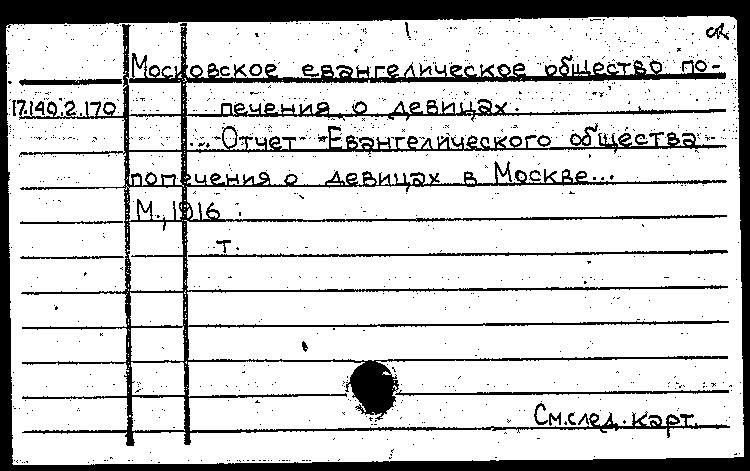 Московское евангелическое общество по-
17.140.2.170 печения о девицах.
... Отчет Евангелического общества
попечения о девицах в Москве...
М., 1916.
т.
См. след. карт.